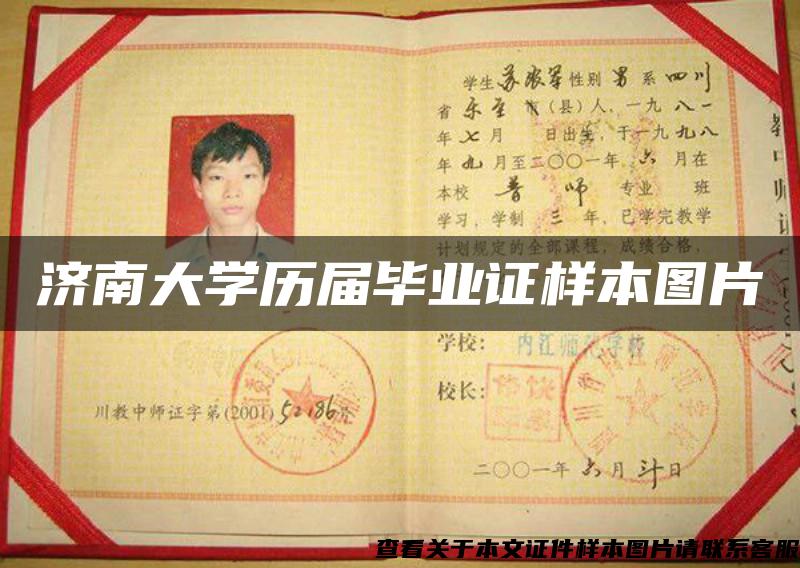 学生 苏农军 性别 男 系 四川
省 乐至 市(县)人,一九八一
年七月 日出生,于一九九八
年九月至二〇〇一年六月在
本校 普师 专业 班
学习,学制 三 年,已学完教学
计划规定的全部课程,成绩合格,
济南大学历届毕业证样本图片
学校: 内江师范学校
校长:
川教中师证字第(2001)52186号
二〇〇一年 六月 廿日
查看关于本文证件样本图片请联系客服